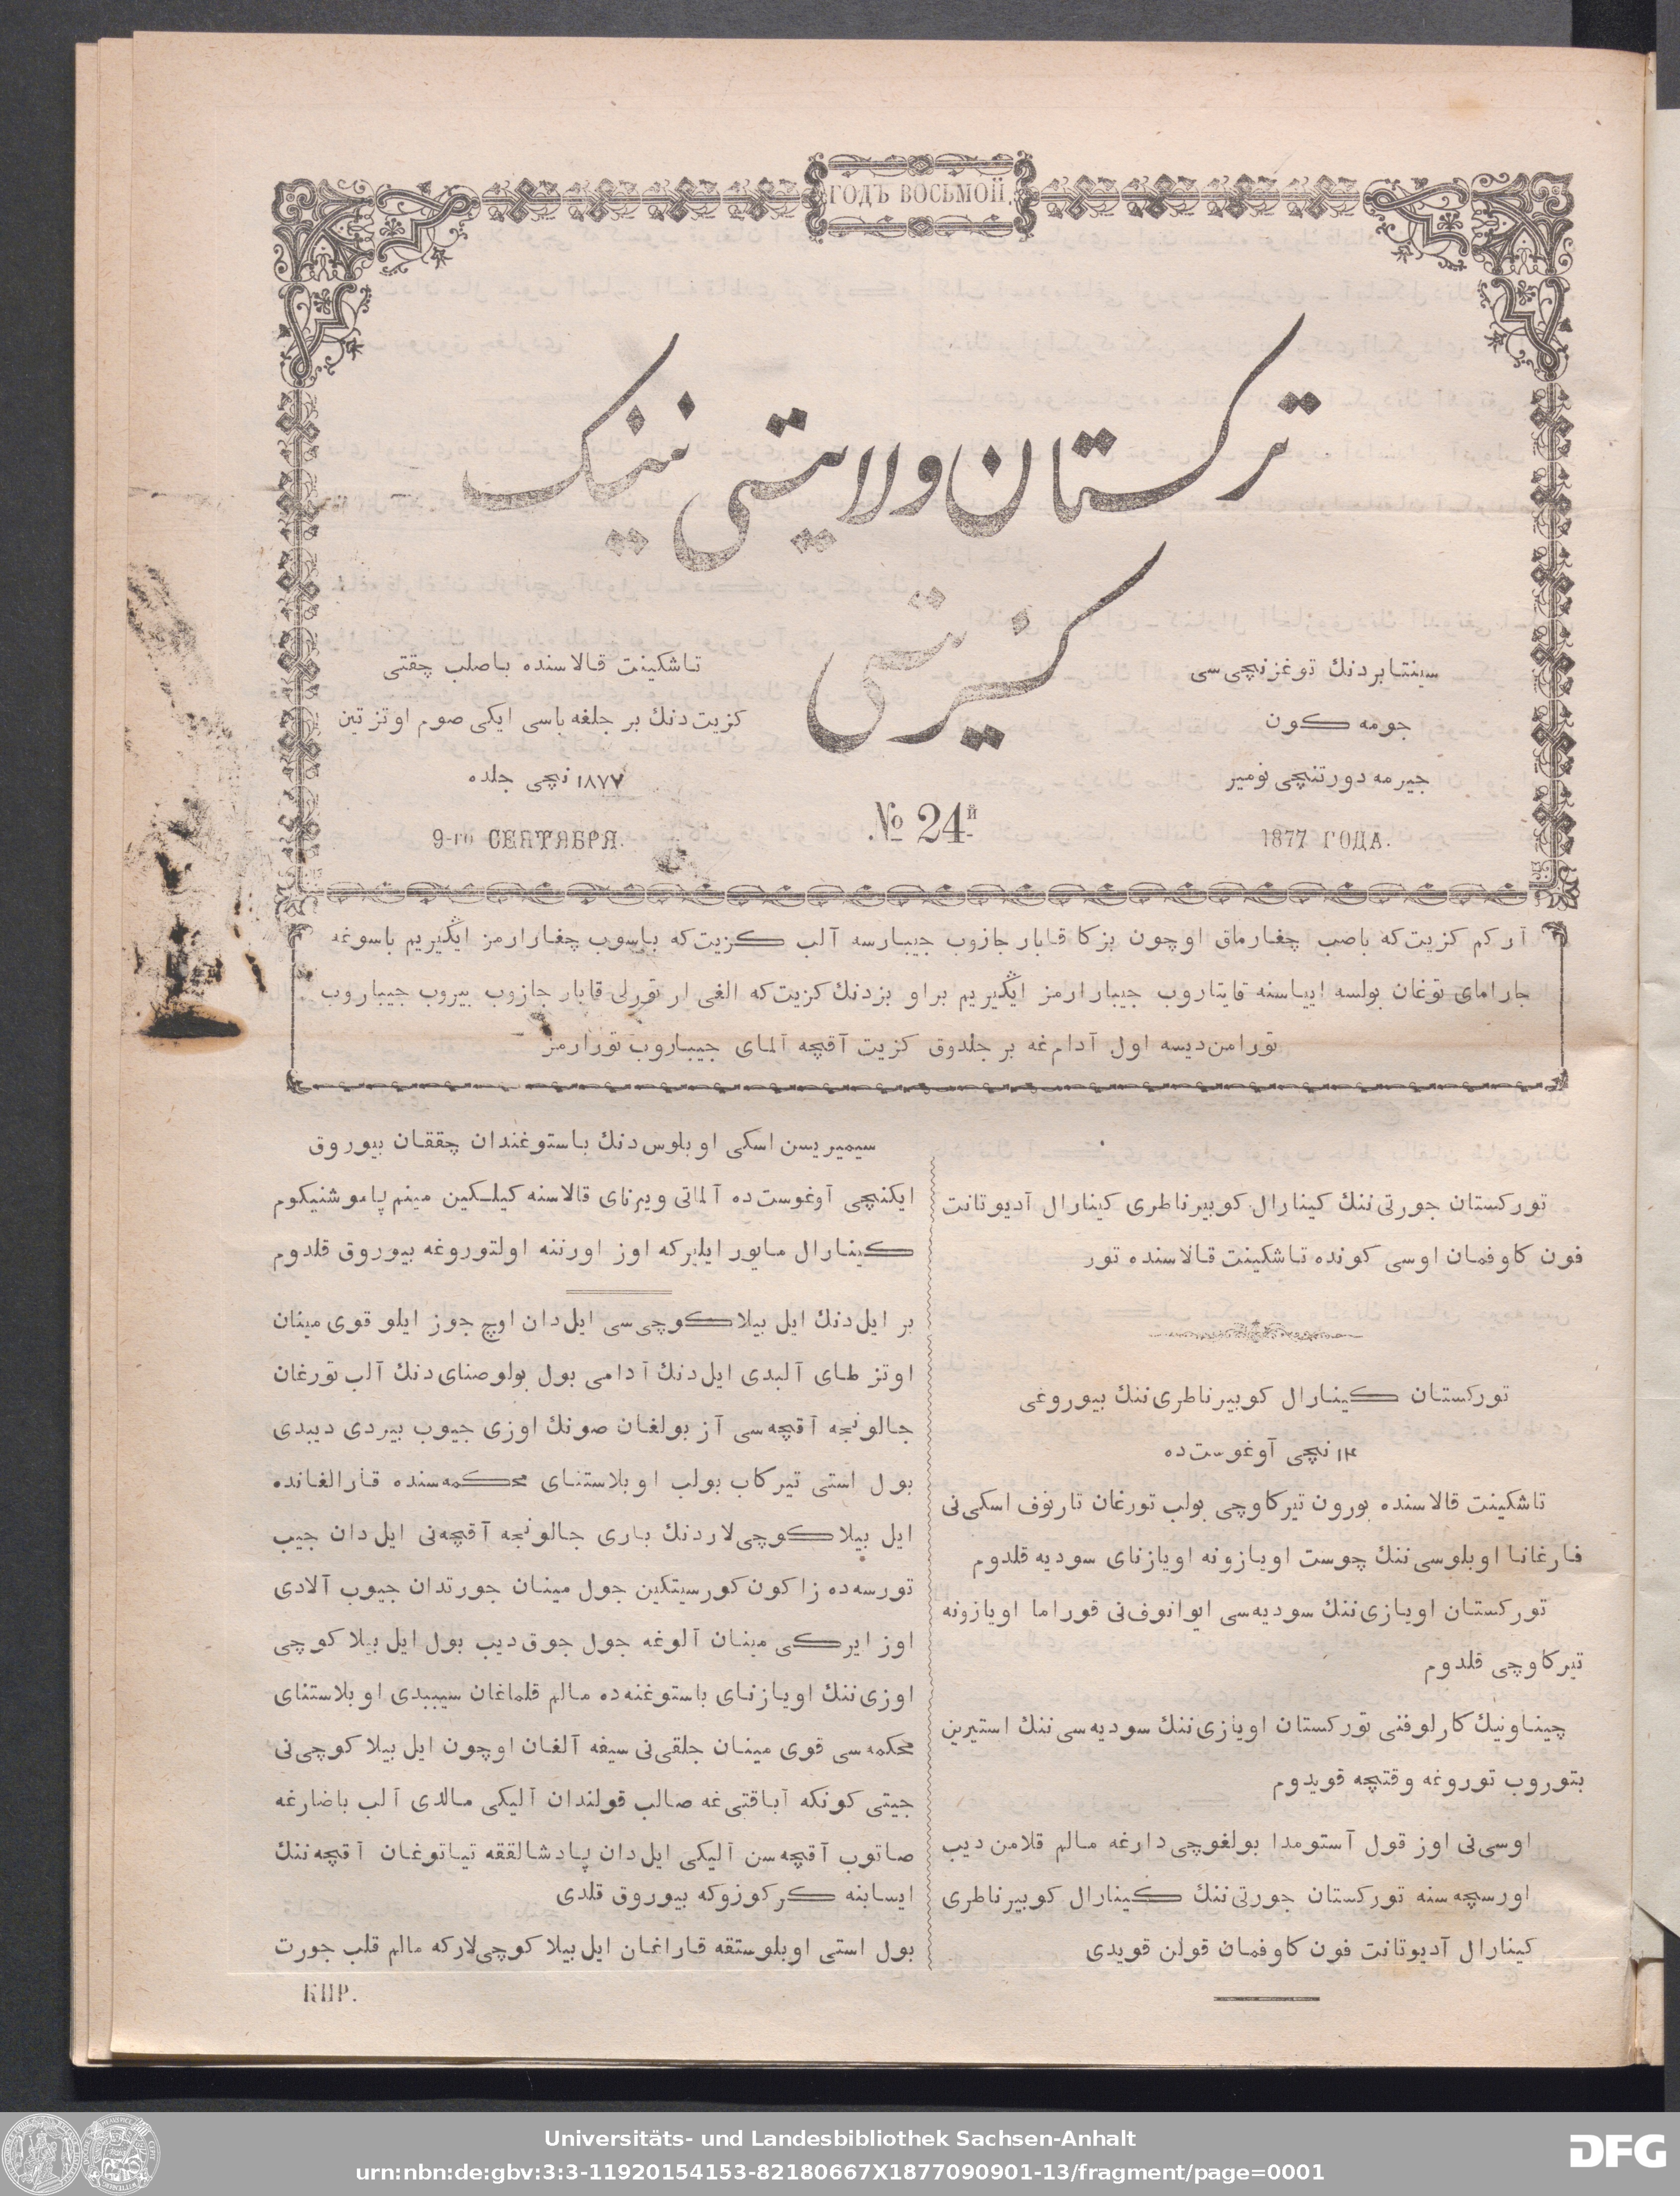 ГОДЪ ВОСЬМОЙ.
تركستان ولايتى نينك
كزيتى
سينتابردنك توغزنچى سى
جومه كون
جيرمه دورتنچى نومير
1877 ГОДА.
№ 24й
تاشكينت قالاسنده باصلب چقتى
كزيت دنك بر جلغه باسى ايكى صوم اوتز تين
١٨٧٧ نچى جلده
9-го СЕНТЯБРЯ.
آر كم كزيت كه باصب چغارماق اوچون بزكا قابار جازوب جيبارسه آلب كزيت كه باسوب چغارارمز ايڭيريم باسوغه
جاراماى توغان بولسه ايياسنه قايتاروب جيبارارمز ايڭيريم براو بزدنك كزيت كه الغى ار تورلى قابار جازوب بيروب جيباروب
تورامن ديسه اول آدام غه بر جلدوق كزيت آقچه آلماى جيباروب تورارمز
توركستان جورتى ننك كينارال كوبيرناطرى كينارال آديوتانت
فون كاوفمان اوسى كونده تاشكينت قالاسنده تور
توركستان كينارال كوبيرناطرى ننك بيوروغى
١٢ نچى آوغوست ده
تاشكينت قالاسنده بورون تيركاوچى بولب تورغان تارنوف اسكى نى
فارغانا اوبلوسى ننك چوست اويازونه اويازناى سوديه قلدوم
توركستان اويازى ننك سوديه سى ايوانوف نى قوراما اويازونه
تيركاوچى قلدوم
چيناونيك كارلوفنى توركستان اويازى ننك سوديه سى ننك استيرين
بتوروب توروغه وقتچه قويدوم
اوسى نى اوز قول آستومدا بولغوچى دارغه مالم قلامن ديب
اورسچه سنه توركستان جورتى ننك كينارال كوبيرناطرى
كينارال آديوتانت فون كاوفمان قولن قويدى
سيميريسن اسكى اوبلوس دنك باستوغندان چققان بيوروق
ايكنچى آوغوست ده آلماتى ويرناى قالاسنه كيلكين مينم پاموشنيكوم
كينارال مايور ايلبركه اوز اورننه اولتوروغه بيوروق قلدوم
بر ايل دنك ايل بيلاكوچى سى ايل دان اوچ جوز ايلو قوى مينان
اوتز طاى آلبدى ايل دنك آدامى بول بولوصناى دنك آلب تورغان
جالونجه آقچه سى آز بولغان صونك اوزى جيوب بيردى ديبدى
بول استى تيركاب بولب اوبلاستناى محكمه سنده قارالغانده
ايل بيلاكوچى لاردنك بارى جالونجه آقچه نى ايل دان جيب
تورسه ده زاكون كورسيتكين جول مينان جورتدان جيوب آلادى
اوز ايركى مينان آلوغه جول جوق ديب بول ايل بيلاكوچى
اوزى ننك اويازناى باستوغنه ده مالم قلماغان سيببدى اوبلاستناى
محكمه سى قوى مينان جلقى نى سيفه آلغان اوچون ايل بيلاكوچى نى
جيتى كونكه آباقتى غه صالب قولندان آليكى مالدى آلب باضارغه
صاتوب آقچه سن آليكى ايل دان پادشالققه تياتوغان آقچه ننك
ايسابنه كركوزوكه بيوروق قلدى
بول استى اوبلوستقه قاراغان ايل بيلاكوچى لاركه مالم قلب جورت
КИР.
Universitäts- und Landesbibliothek Sachsen-Anhalt
urn:nbn:de:gbv:3:3-11920154153-82180667X1877090901-13/fragment/page=0001
DFG